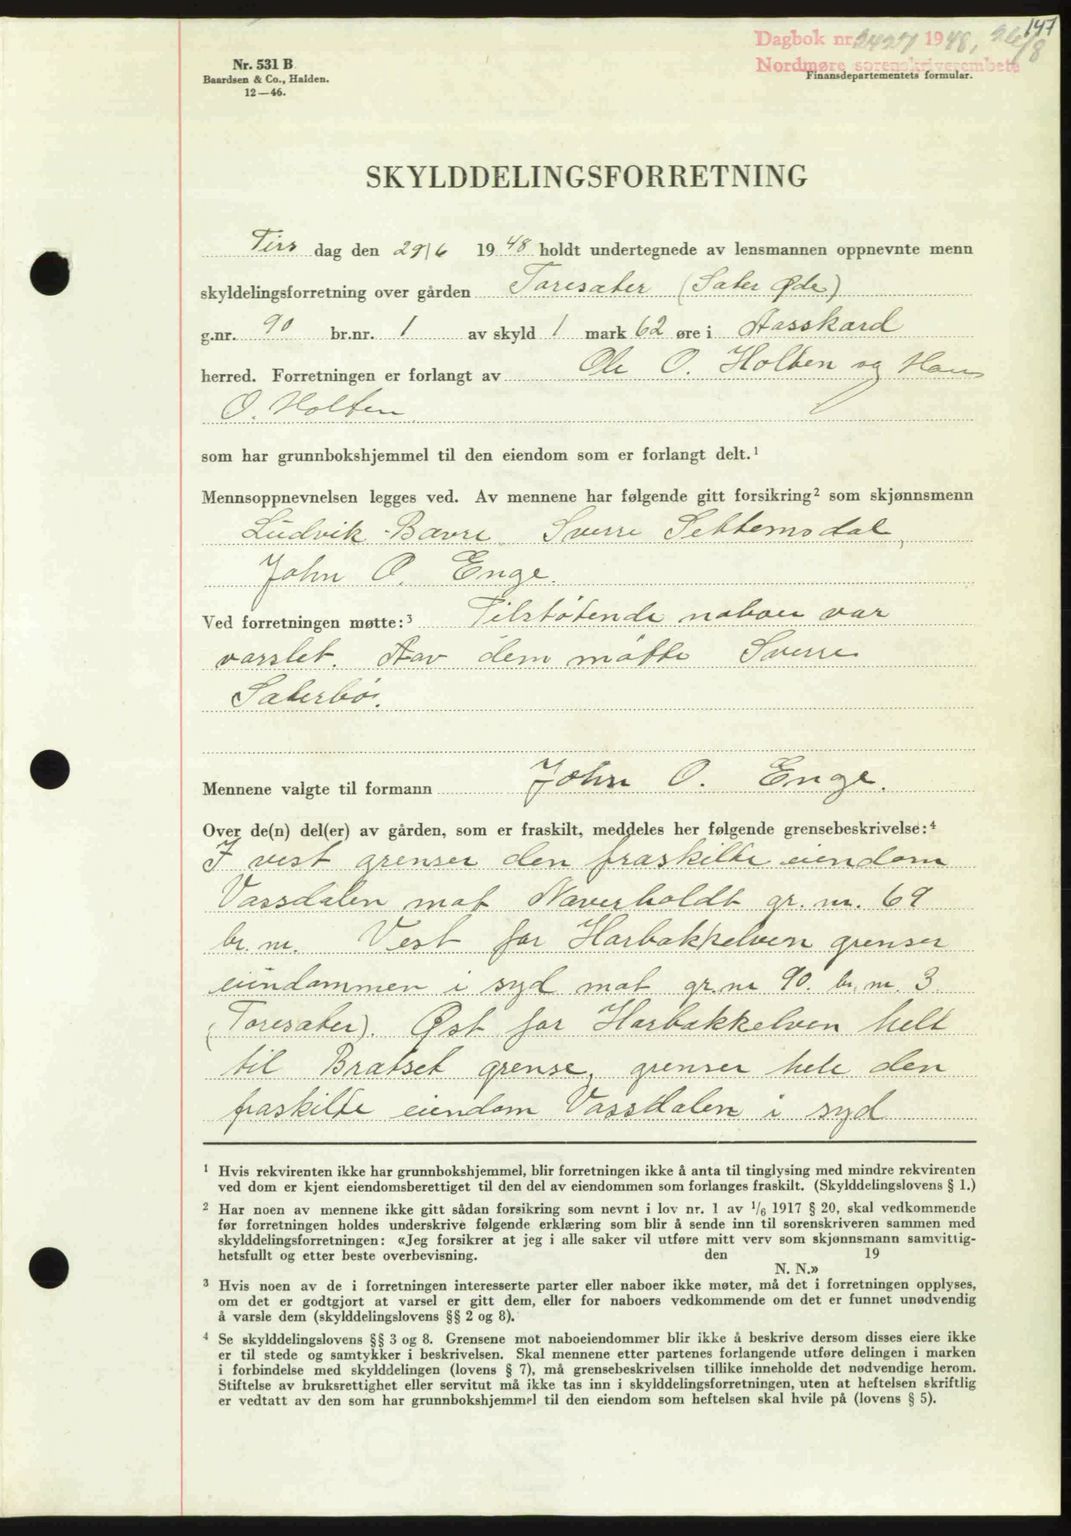 147
Dagbok nr. 2427 1948, 26/8
Nordmøre sorenskriverembete
Nr. 531 B
Baardsen & Co., Halden.
12—46.
Finansdepartementets formular.
SKYLDDELINGSFORRETNING
Tirs dag den 29/6 1948 holdt undertegnede av lensmannen oppnevnte menn
skyldelingsforretning over gården Toresæter (Sæter Øde)
g.nr. 90 br.nr. 1 av skyld 1 mark 62 øre i Aasskard
herred. Forretningen er forlangt av Ole O. Holten og Hans
O. Holten
som har grunnbokshjemmel til den eiendom som er forlangt delt.¹
Mennsoppnevnelsen legges ved. Av mennene har følgende gitt forsikring² som skjønnsmenn
Ludvik Bævre Sverre Settemsdal,
John O. Enge.
Ved forretningen møtte:³ Tilstøtende naboer var
varslet. Aav dem møtte Sverre
Sæterbø.
Mennene valgte til formann John O. Enge.
Over de(n) del(er) av gården, som er fraskilt, meddeles her følgende grensebeskrivelse:⁴
I vest grenser den fraskilte eiendom
Vassdalen mot Naverholdt gr. nr. 69
br. nr. Vest for Harbakkelven grenser
eiendommen i syd mot gr. nr 90. br. nr. 3.
(Toresæter). Øst for Harbakkelven helt
til Bratset grense, grenser hele den
fraskilte eiendom Vassdalen i syd
¹ Hvis rekvirenten ikke har grunnbokshjemmel, blir forretningen ikke å anta til tinglysing med mindre rekvirenten
ved dom er kjent eiendomsberettiget til den del av eiendommen som forlanges fraskilt. (Skylddelingslovens § 1.)
² Har noen av mennene ikke gitt sådan forsikring som nevnt i lov nr. 1 av 1/6 1917 § 20, skal vedkommende
før forretningen holdes underskrive følgende erklæring som blir å sende inn til sorenskriveren sammen med
skylddelingsforretningen: «Jeg forsikrer at jeg i alle saker vil utføre mitt verv som skjønnsmann samvittig-
hetsfullt og etter beste overbevisning. den 19
N. N.»
³ Hvis noen av de i forretningen interesserte parter eller naboer ikke møter, må det i forretningen opplyses,
om det er godtgjort at varsel er gitt dem, eller for naboers vedkommende om det er funnet unødvendig
å varsle dem (skylddelingslovens §§ 2 og 8).
⁴ Se skylddelingslovens §§ 3 og 8. Grensene mot naboeiendommer blir ikke å beskrive dersom disses eiere ikke
er til stede og samtykker i beskrivelsen. Skal mennene etter partenes forlangende utføre delingen i marken
i forbindelse med skylddelingen (lovens § 7), må grensebeskrivelsen tillike inneholde det nødvendige herom.
Stiftelse av bruksrettighet eller servitut må ikke tas inn i skylddelingsforretningen, uten at heftelsen skriftlig
er vedtatt av den som har grunnbokshjemmel til den eiendom som heftelsen skal hvile på (lovens § 5).